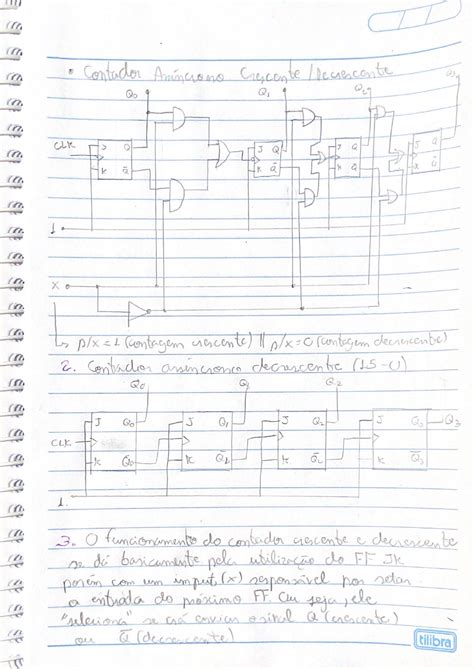 • Contador Assíncrono Crescente/Decrescente
Q0 Q1 Q2 Q3
CLK J Q J Q J Q J Q
K Q̅ K Q̅ K Q̅ K Q̅
1
X
p/x = 1 (contagem crescente) || p/x = 0 (contagem decrescente)
2. Contador assíncrono decrescente (15-0)
Q0 Q1 Q2
J Q0 J Q1 J Q2 J Q3 Q3
CLK
K Q̅0 K Q̅1 K Q̅2 K Q̅3
1
3. O funcionamento do contador crescente e decrescente
se dá basicamente pela utilização do FF JK
porém com um input (x) responsável por setar
a entrada do próximo FF ou seja, ele
"seleciona" se irá enviar o sinal Q (crescente)
ou Q̅ (decrescente)
tilibra